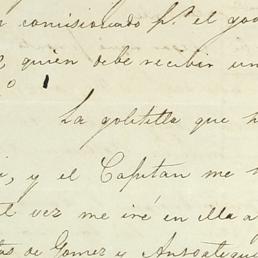 comisionado p.ª el go
quien debe recibir un
La goletilla que
y el Capitan me
vez me iré en ella a
de Gomez y Anzoategui